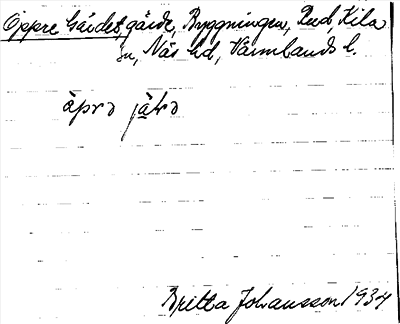 Öppre Gärdet, gärde, Byggningen, Rud, Kila
sn, Näs hd, Värmlands l.
äprə jäɫrə
Britta Johansson 1934